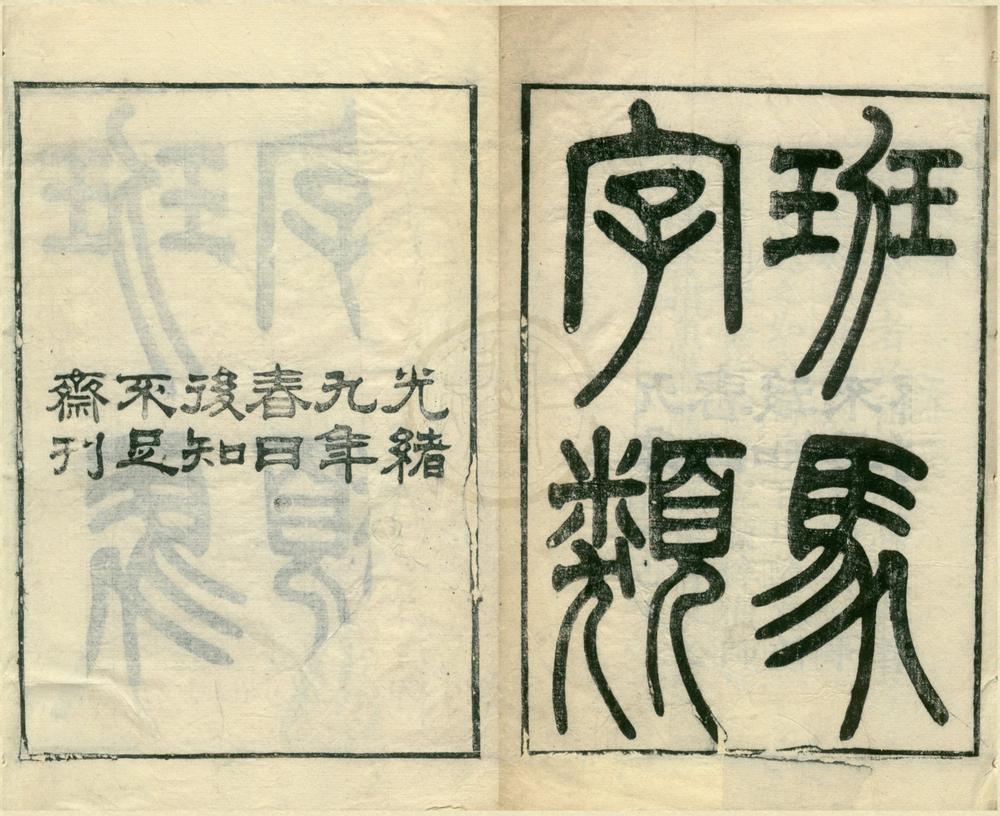 班馬
字類
光緒
九年
春日
後知
不足
齋刊